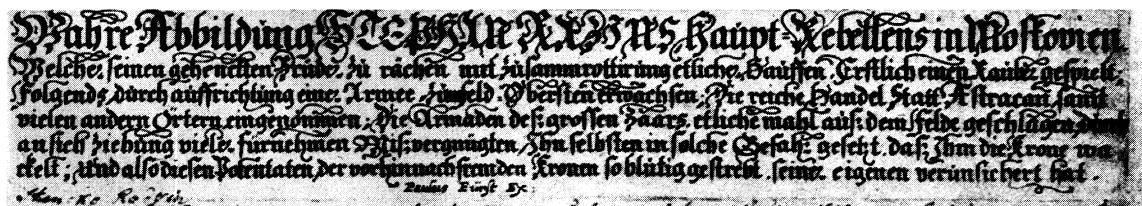 Wahre Abbildung STEPHAN RAZINS Haupt-Rebellens in Moscovien
Welcher seinen gehenckten Bruder zu rächen mit zusammrottirung etlicher Hauffen, Erstlich einen Rauber gespielt,
Folgends durch auffrichtung einer Armee zum feld Obersten erwachsen, Die reiche Handel Statt Astracan, samt
vielen andern Ortern eingenommen, Die Armaden deß grossen Zaars etliche mahl auß dem Felde geschlagen, durch
an sich Ziehung vieler fürnehmen Mißvergnügten, Ihn selbsten in solche Gefahr gesetzt, daß Ihm die Krone wa
ckelt, Und also diesen Potentaten, der vorhin nach fremden Kronen so blutig gestrebt, seiner eigenen verunsichert hat.
Paulus Fürst Ex: